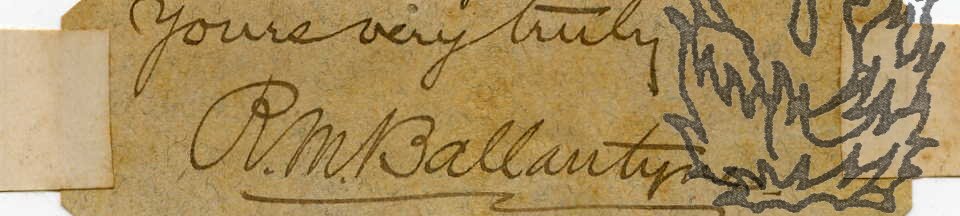 Yours very truly
R.M. Ballantyne